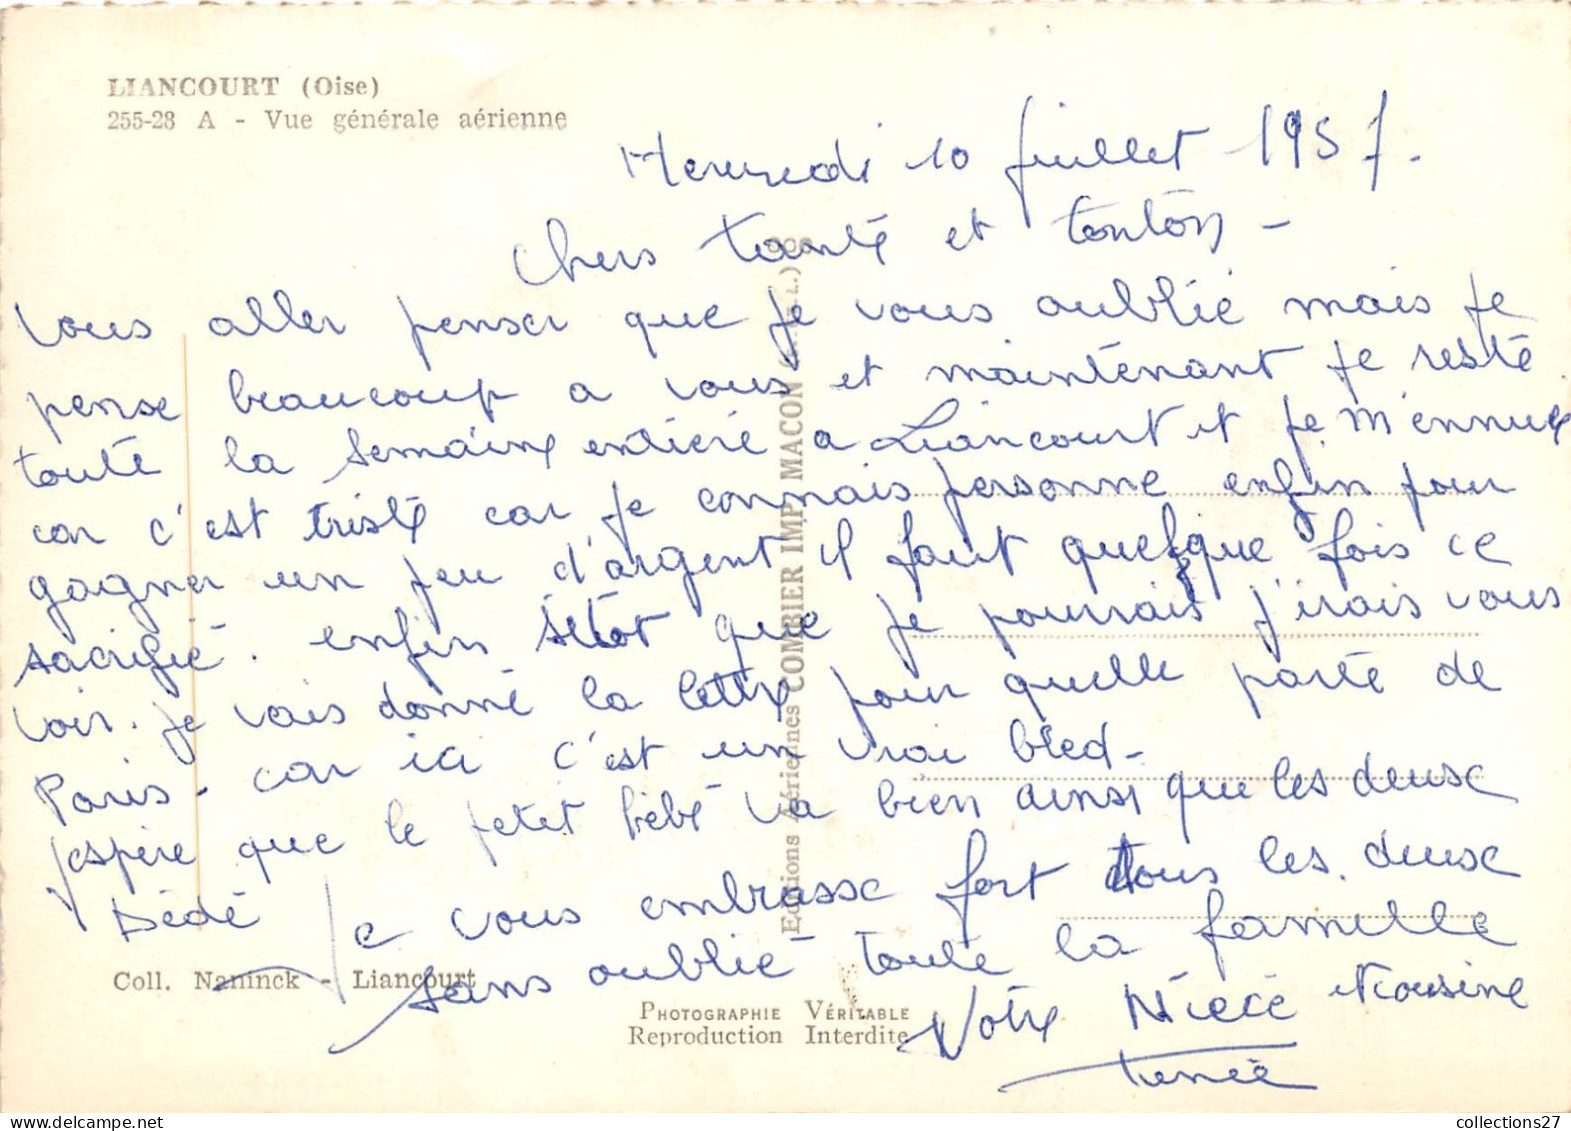 LIANCOURT (Oise)
255-28 A - Vue générale aérienne
Mercredi 10 juillet 1957.
Chers tante et tonton -
Vous aller penser que je vous oublié mais je
pense beaucoup a vous et maintenant je reste
toute la semaine entiere a Liancourt et je m'ennuie
car c'est triste car je connais personne enfin pour
gagner un peu d'argent il faut quelque fois ce
sacrifié. enfin sitot que je pourrais j'irais vous
voir. je vais donné la lettre pour quelle parte de
Paris - car ici c'est un vrai bled -
j'espère que le petit bébé va bien ainsi que les deux
Dédé
Je vous embrasse fort tous les deux
sans oublié toute la famille
Votre Nièce et cousine
Editions Aériennes COMBIER IMP. MACON
Coll. Naninck - Liancourt
PHOTOGRAPHIE VÉRITABLE
Reproduction Interdite
collections27